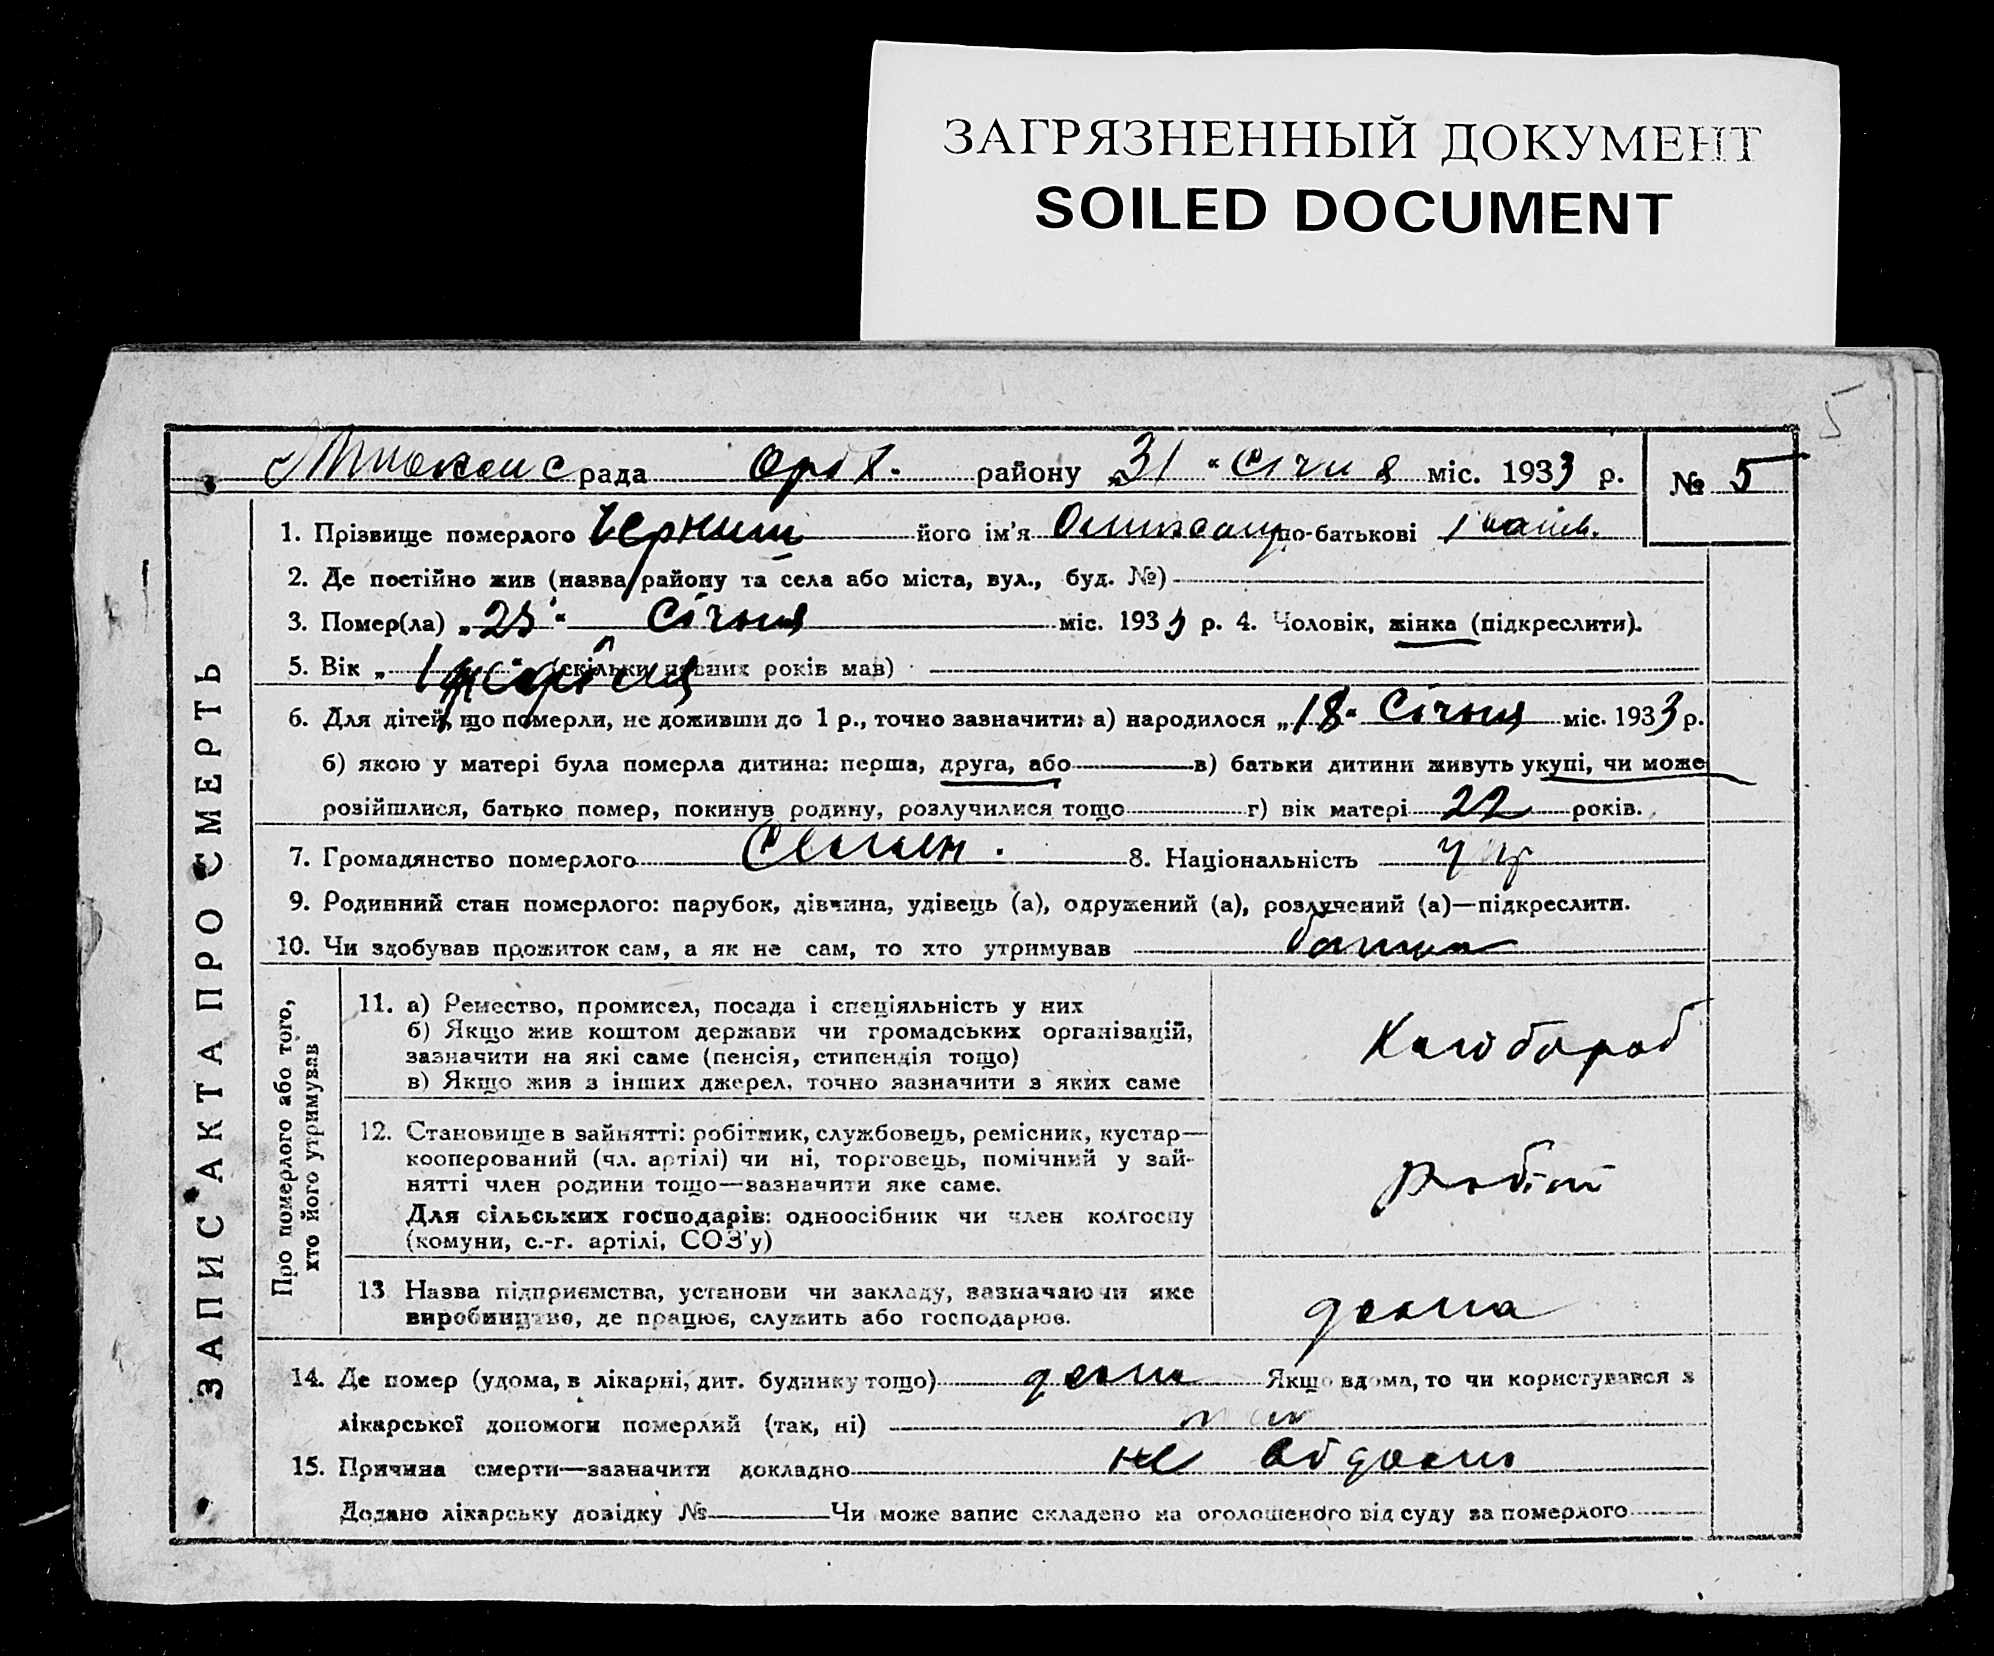 ЗАГРЯЗНЕННЫЙ ДОКУМЕНТ
SOILED DOCUMENT
5
рада Оріх. району „31“ Січня міс. 1933 р. № 5
ЗАПИС АКТА ПРО СМЕРТЬ
1. Прізвище померлого його ім'я по-батькові
2. Де постійно жив (назва району та села або міста, вул., буд. №)
3. Помер(ла) „25“ Січня міс. 1933 р. 4. Чоловік, жінка (підкреслити).
5. Вік „ 1 “ (скільки повних років мав)
6. Для дітей, що померли, не доживши до 1 р., точно зазначити: а) народилося „18“ Січня міс. 1933 р.
б) якою у матері була померла дитина: перша, друга, або в) батьки дитини живуть укупі, чи може
розійшлися, батько помер, покинув родину, розлучилися тощо г) вік матері 22 років.
7. Громадянство померлого 8. Національність укр
9. Родинний стан померлого: парубок, дівчина, удівець (а), одружений (а), розлучений (а)—підкреслити.
10. Чи здобував прожиток сам, а як не сам, то хто утримував батько
Про померлого або того,
хто його утримував
11. а) Ремество, промисел, посада і спеціяльність у них
б) Якщо жив коштом держави чи громадських організацій,
зазначити на які саме (пенсія, стипендія тощо)
в) Якщо жив з інших джерел, точно зазначити з яких саме
Хлібороб
12. Становище в зайнятті: робітник, службовець, ремісник, кустар—
кооперований (чл. артілі) чи ні, торговець, помічний у зай-
нятті член родини тощо—зазначити яке саме.
Для сільських господарів: одноосібник чи член колгоспу
(комуни, с.-г. артілі, СОЗ'у)
робіт
13 Назва підприємства, установи чи закладу, зазначаючи яке
виробництво, де працює, служить або господарює.
дома
14. Де помер (удома, в лікарні, дит. будинку тощо) дома Якщо вдома, то чи користувався з
лікарської допомоги померлий (так, ні)
15. Причина смерти—зазначити докладно не відомо
Додано лікарську довідку № Чи може запис складено на оголошеного від суду за померлого